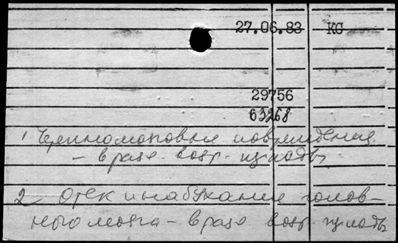 27.06.83 KG
29756
63268
1 Черепномозговые повреждения
- в разл. возр. периоды
2 Отек и набухание голов-
ного мозга - в разл. возр. периоды